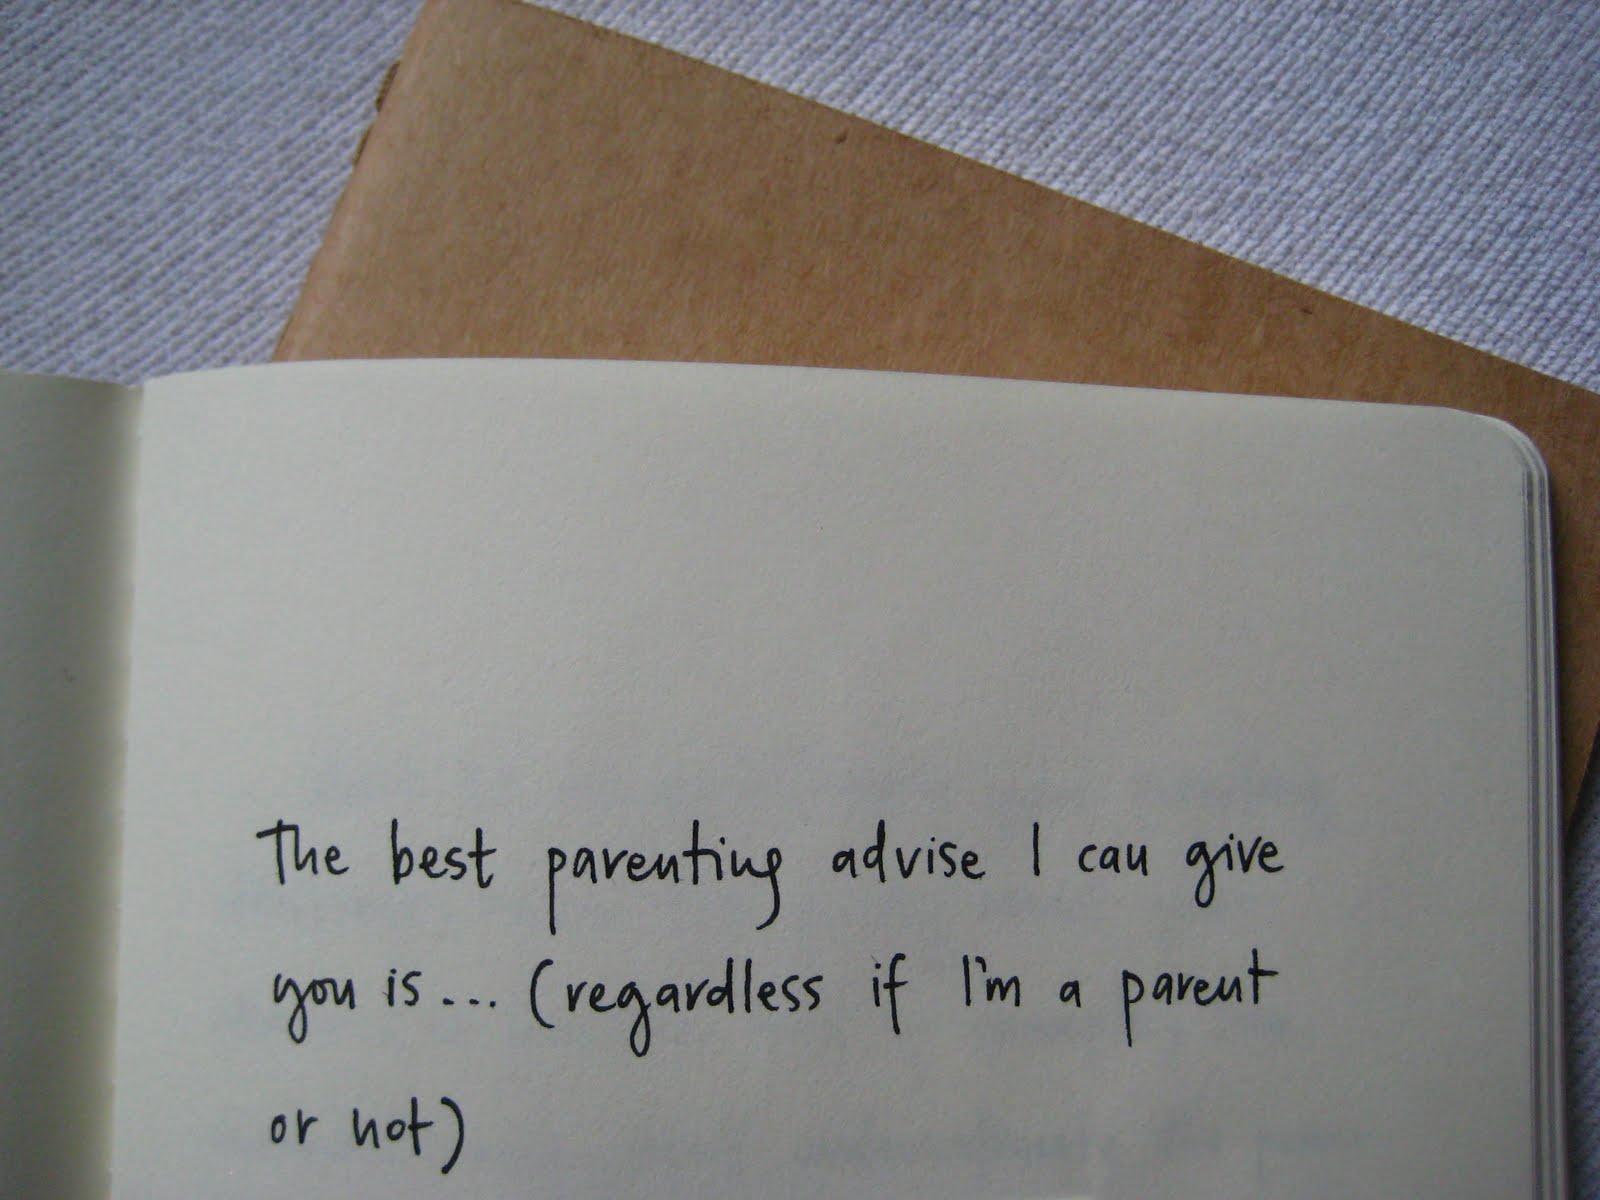 The best parenting advise I can give
you is... (regardless if I'm a parent
or not)